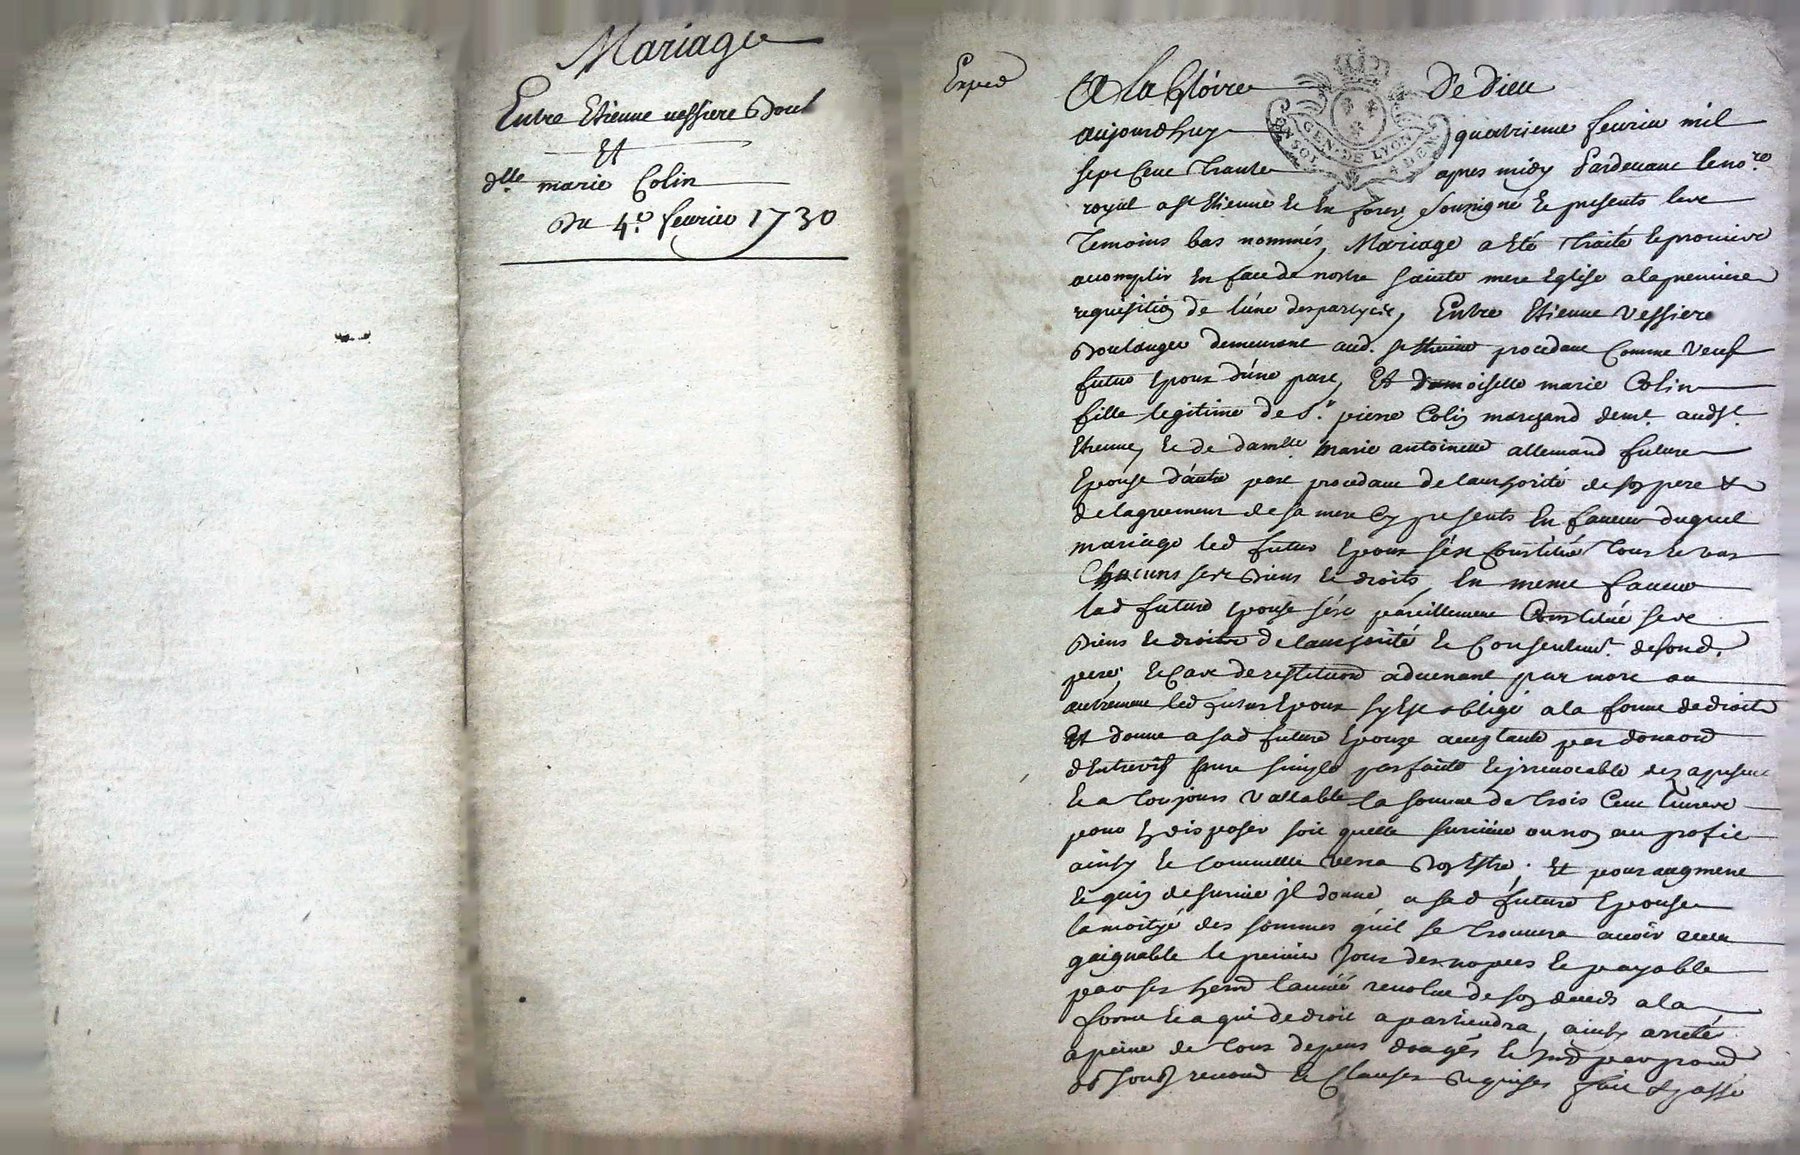 Mariage
Entre Etienne vessiere Boul
Et
dlle marie Colin
Du 4e fevrier 1730
Exped
A la Gloire De Dieu
GEN. DE LYON
aujourdhuy quatrieme fevrier mil
sept Cent Trante apres midy Pardevant le nore
royal a St Etienne Et En forez Soussigné Et presents les
Temoins bas nommés, Mariage a Eté traité Et promis
acomplir En face de nostre sainte mere Eglise a la premiere
requisition de l'une des partyes, Entre Etienne vessiere
Boulanger demeurant aud. St Etienne procedant Comme veuf
futur Epoux d'une part, Et Damoiselle marie Colin
fille legitime de Sr pierre Colin marchand demt audSt
Etienne, Et de damlle marie antoinette allemand future
Epouse d'autre part procedant de l'authorité de son pere &
de l'agrement de sa mere Cy presents En faveur duquel
mariage led futur Epoux s'est Constitué Tous et un
Chacuns ses Biens Et droits, En meme faveur
lad future Epouse s'est pareillement Constitué ses
Biens Et droits de l'authorité Et Consentemt. de sond.
pere, Et Cas de restitution advenant par mort ou
autrement led futur Epoux s'y Est obligé a la forme de droit
Et donne a sad future Epouze aceptante par donaon
d'Entrevifs pure simple parfaite Et irrevocable dez apresent
Et a Toujours vallable la somme de trois Cent livres
pour En disposer soit quelle survive ou non au profit
ainsy Et Comme Elle verra Bon Estre. Et pour augment
Et gain de survie il donne a sad future Epouse
la moityé des sommes qu'il se trouvera avoir reçu
gaignable le premier Jour des nopces Et payable
par ses herd l'année revolue de son deceds a la
forme Et a qui de droit apartiendra, ainsy arreté
a peine de tous depens domages Et par
Et Clauses Requises fait & passé